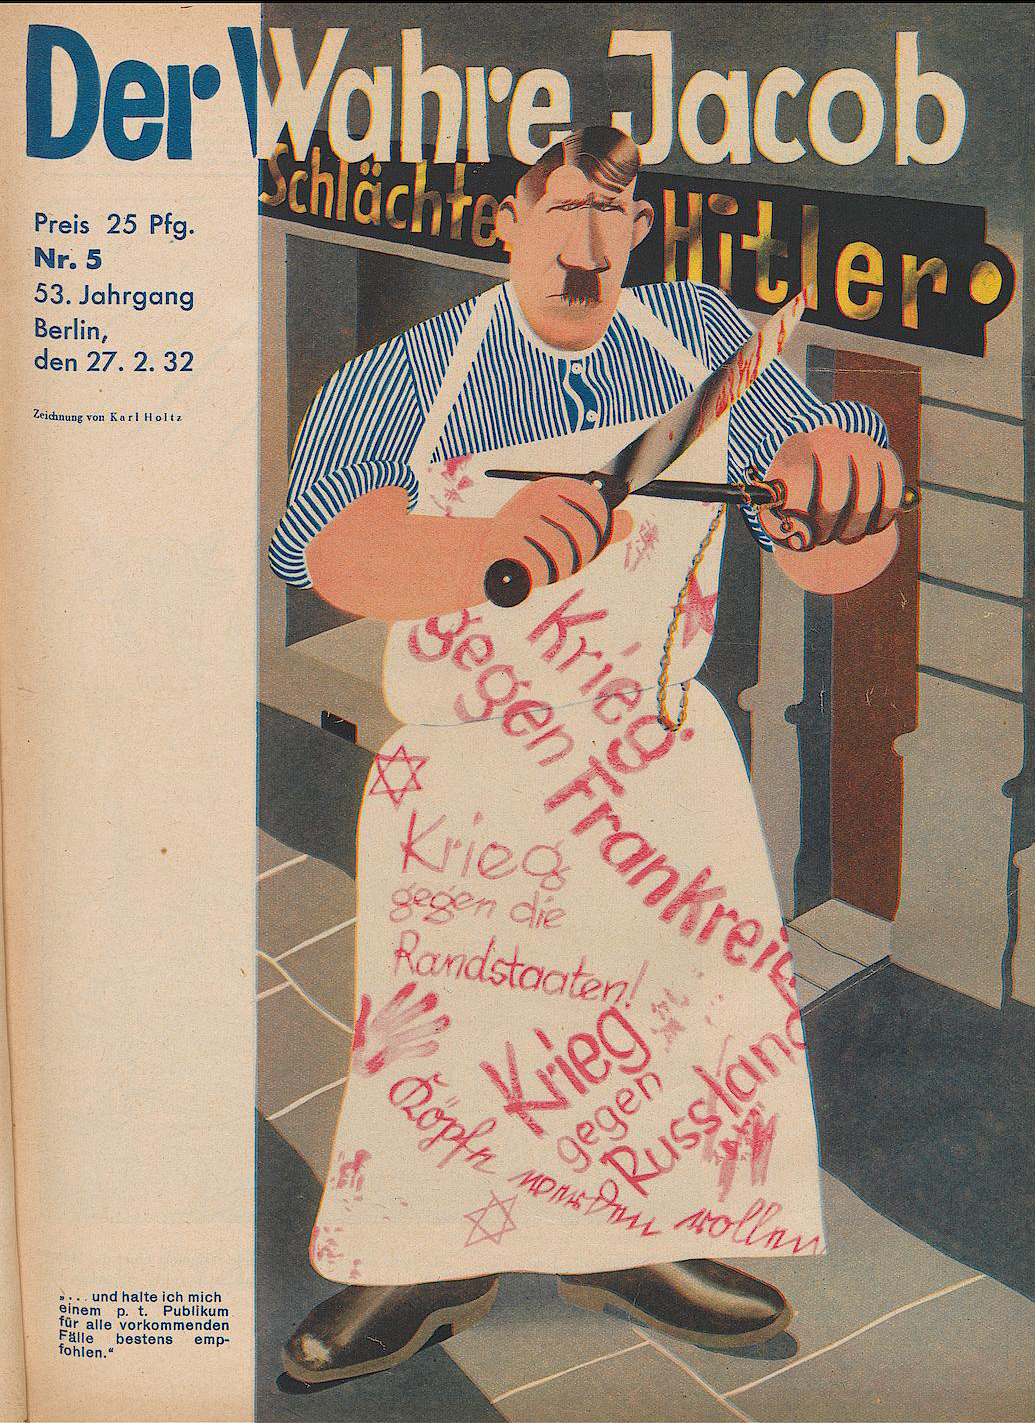 Der Wahre Jacob
Schlächter Hitler
Preis 25 Pfg.
Nr. 5
53. Jahrgang
Berlin,
den 27. 2. 32
Zeichnung von Karl Holtz
Krieg
gegen
Frankreich
Krieg
gegen die
Randstaaten!
Krieg
gegen
Russland
Köpfe werden rollen
„... und halte ich mich
einem p. t. Publikum
für alle vorkommenden
Fälle bestens emp-
fohlen.“